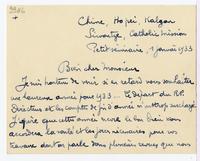 Chine, Hopei, Kalgan
Siwantze, Catholic Mission
Petit séminaire, 1 janvier 1933
Bien cher Monsieur
Je suis honteux de venir si en retard vous souhaiter
une heureuse année pour 1933... Le départ du R.P.
Directeur et les comptes de fin d'année m'ont trop surchargé.
J'espère que cette année encore le bon Dieu nous
accordera la santé et les forces nécessaires pour vos
travaux dont on parle dans plusieurs revues que nous